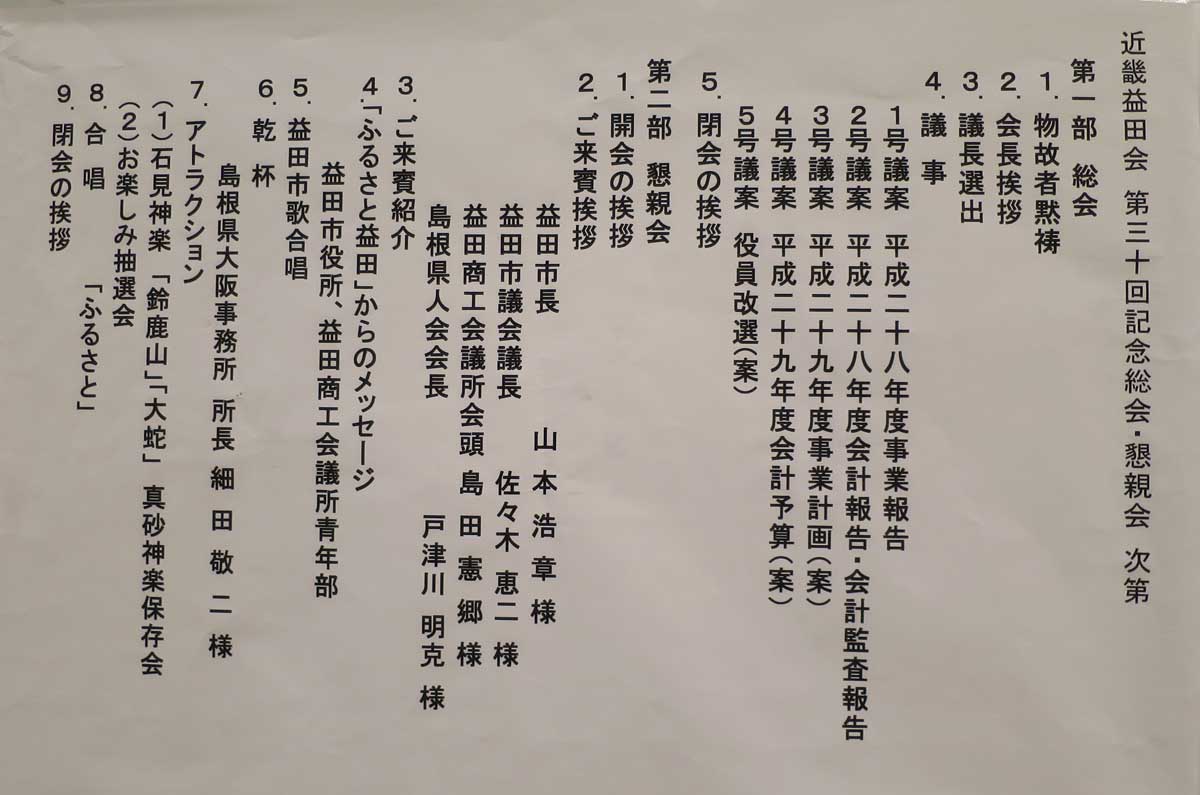 近畿益田会 第三十回記念総会・懇親会 次第
第一部 総会
1. 物故者黙祷
2. 会長挨拶
3. 議長選出
4. 議 事
1号議案 平成二十八年度事業報告
2号議案 平成二十八年度会計報告・会計監査報告
3号議案 平成二十九年度事業計画(案)
4号議案 平成二十九年度会計予算(案)
5号議案 役員改選(案)
5. 閉会の挨拶
第二部 懇親会
1. 開会の挨拶
2. ご来賓挨拶
益田市長 山本浩章様
益田市議会議長 佐々木恵二様
益田商工会議所会頭 島田憲郷様
島根県人会会長 戸津川明克様
3. ご来賓紹介
4.「ふるさと益田」からのメッセージ
益田市役所、益田商工会議所青年部
5. 益田市歌合唱
6. 乾 杯
島根県大阪事務所 所長 細田敬二様
7. アトラクション
(1)石見神楽 「鈴鹿山」「大蛇」 真砂神楽保存会
(2)お楽しみ抽選会
8. 合 唱 「ふるさと」
9. 閉会の挨拶